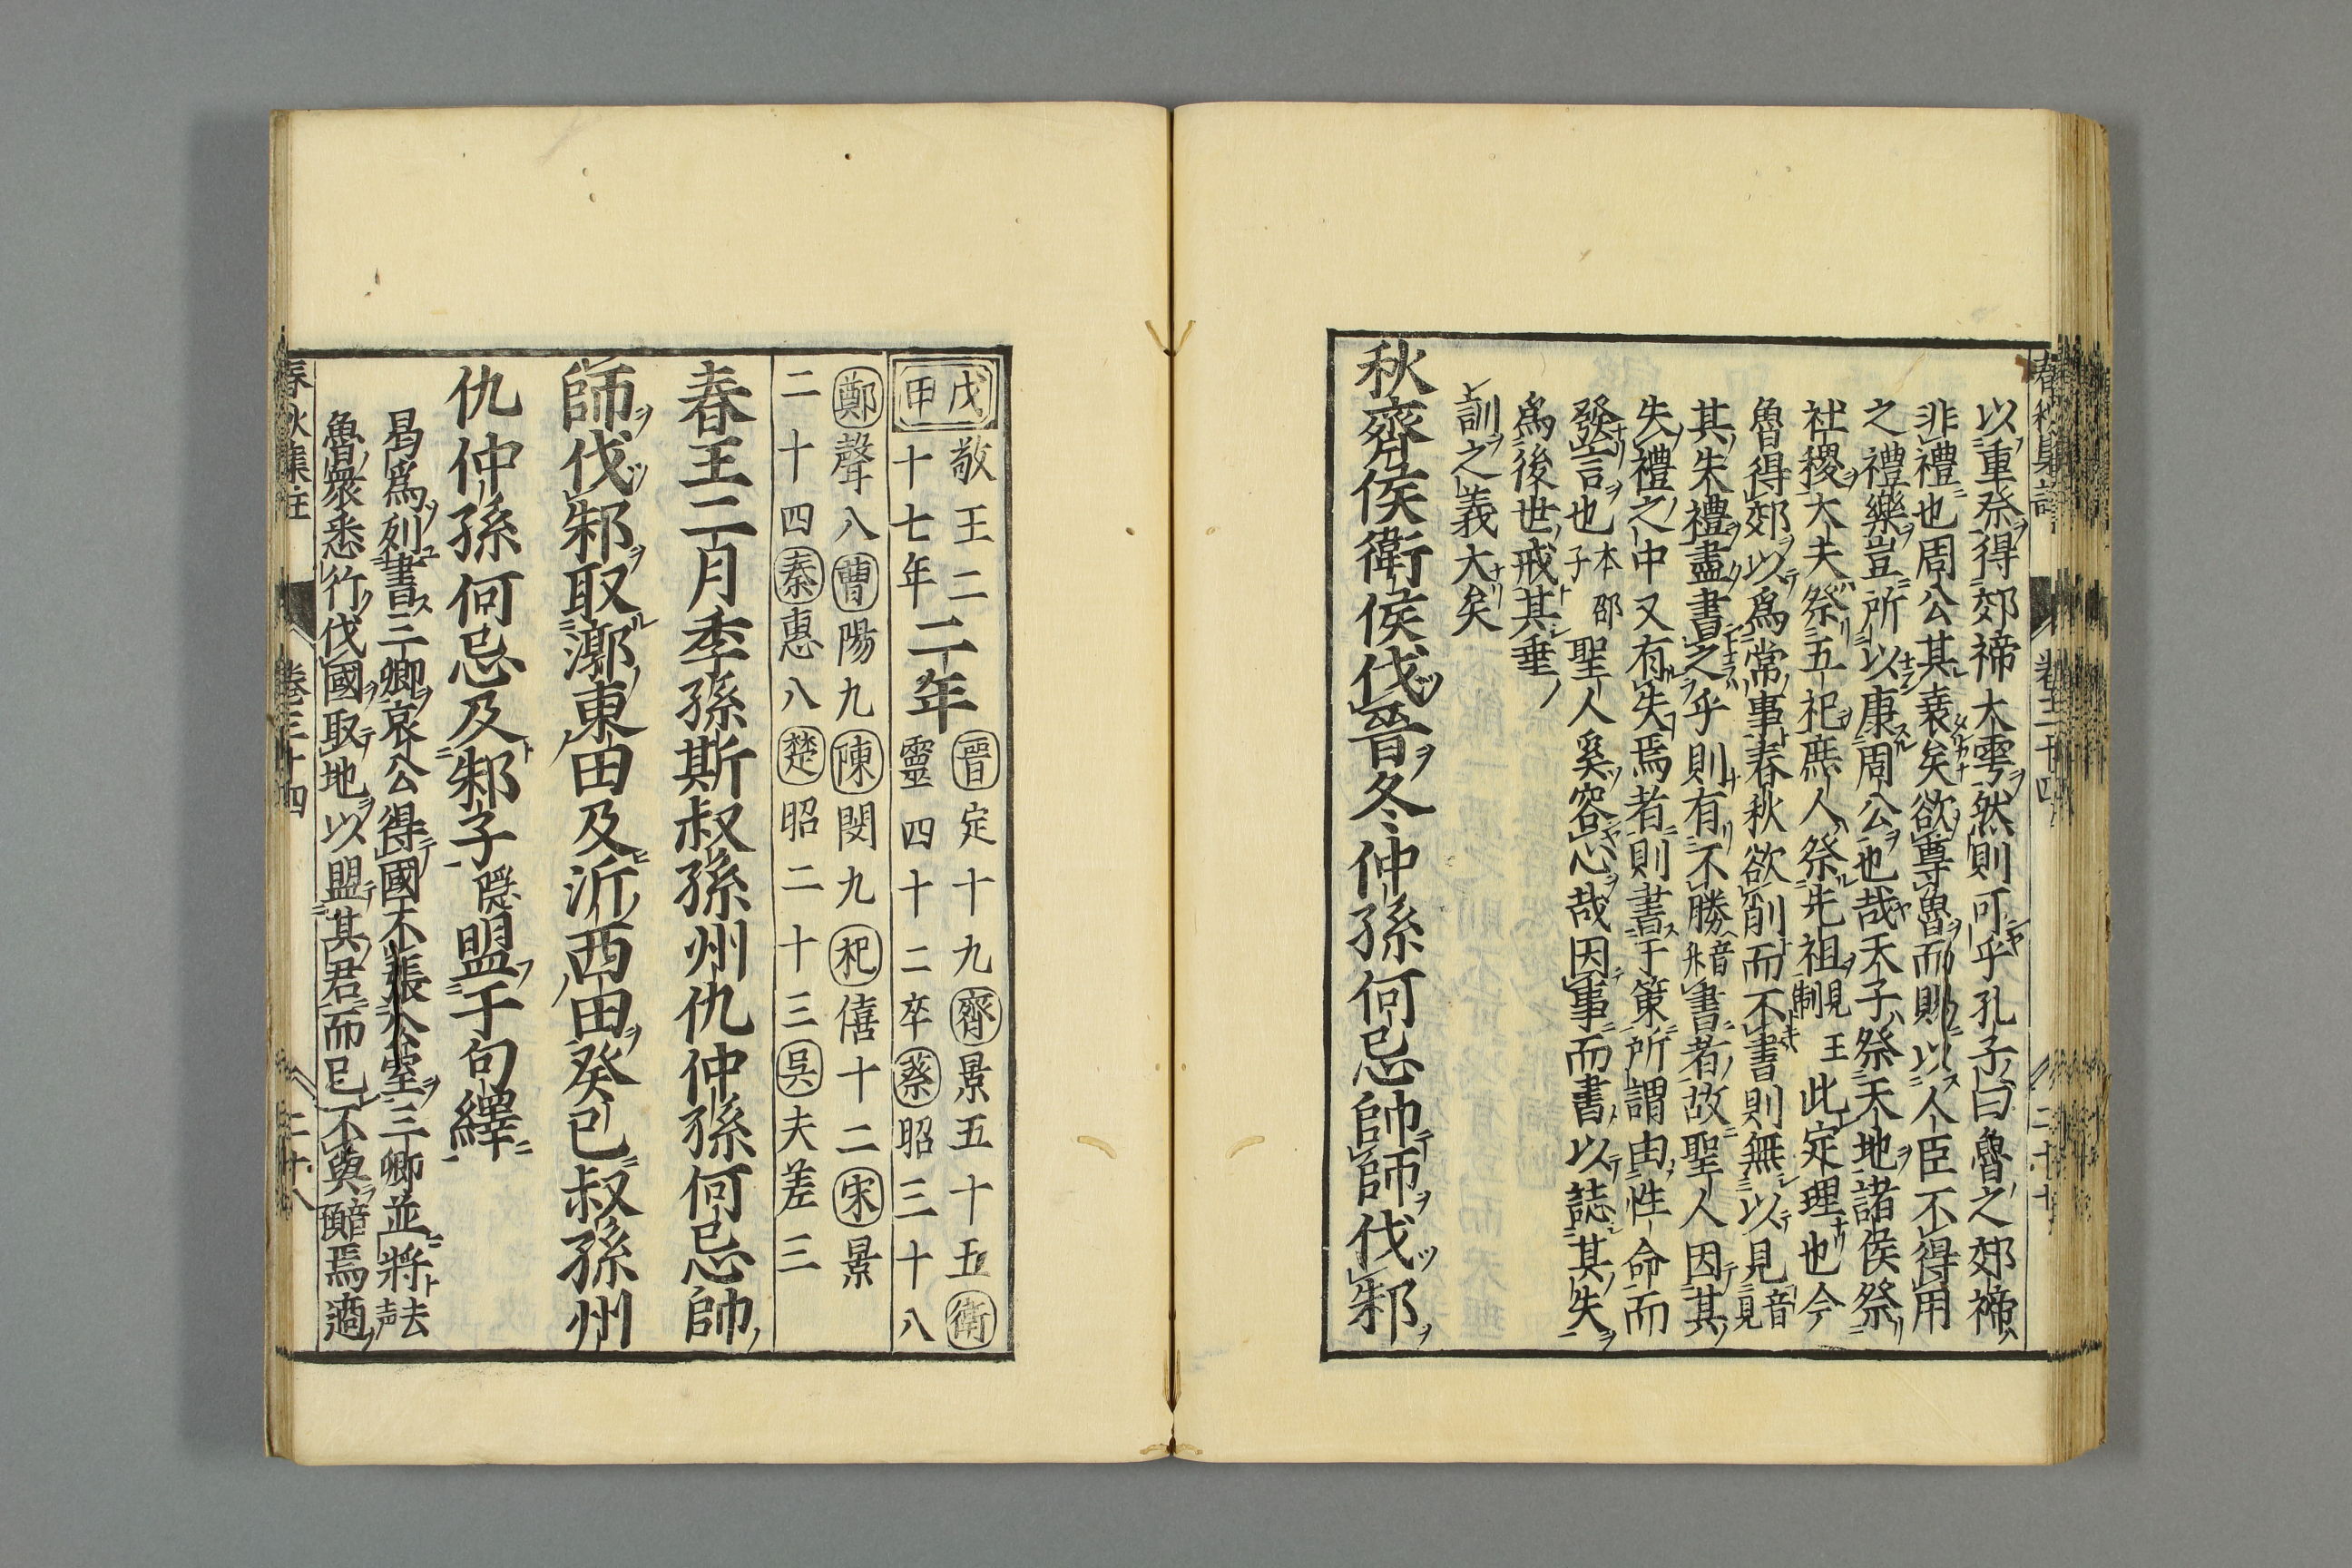 以重祭得郊禘大雩然則可乎孔子曰魯之郊禘
非禮也周公其衰矣欲尊魯而賜以人臣不得用
之禮樂豈所以康周公也哉天子祭天地諸侯祭
社稷大夫祭五祀庶人祭先祖見王制此定理也今
魯得郊以為常事春秋欲削而不書則無以見音見
其失禮盡書之乎則有不勝音升書者故聖人因其
失禮之中又有失焉者則書于策所謂由性命而
發言也本邵子聖人奚容心哉因事而書以誌其失
為後世戒其垂
訓之義大矣
秋齊侯衛侯伐晉冬仲孫何忌帥師伐邾
戊申敬王二十七年二年晉定十九齊景五十五衛靈四十二卒蔡昭三十八
鄭聲八曹陽九陳閔九杞僖十二宋景
二十四秦惠八楚昭二十三吳夫差三
春王二月季孫斯叔孫州仇仲孫何忌帥
師伐邾取漷東田及沂西田癸巳叔孫州
仇仲孫何忌及邾子隱盟于句繹
曷為列書三卿哀公得國不張公室三卿並將去声
魯衆悉行伐國取地以盟其君而已不與音預焉適
春秋集註 卷三十四 二十八